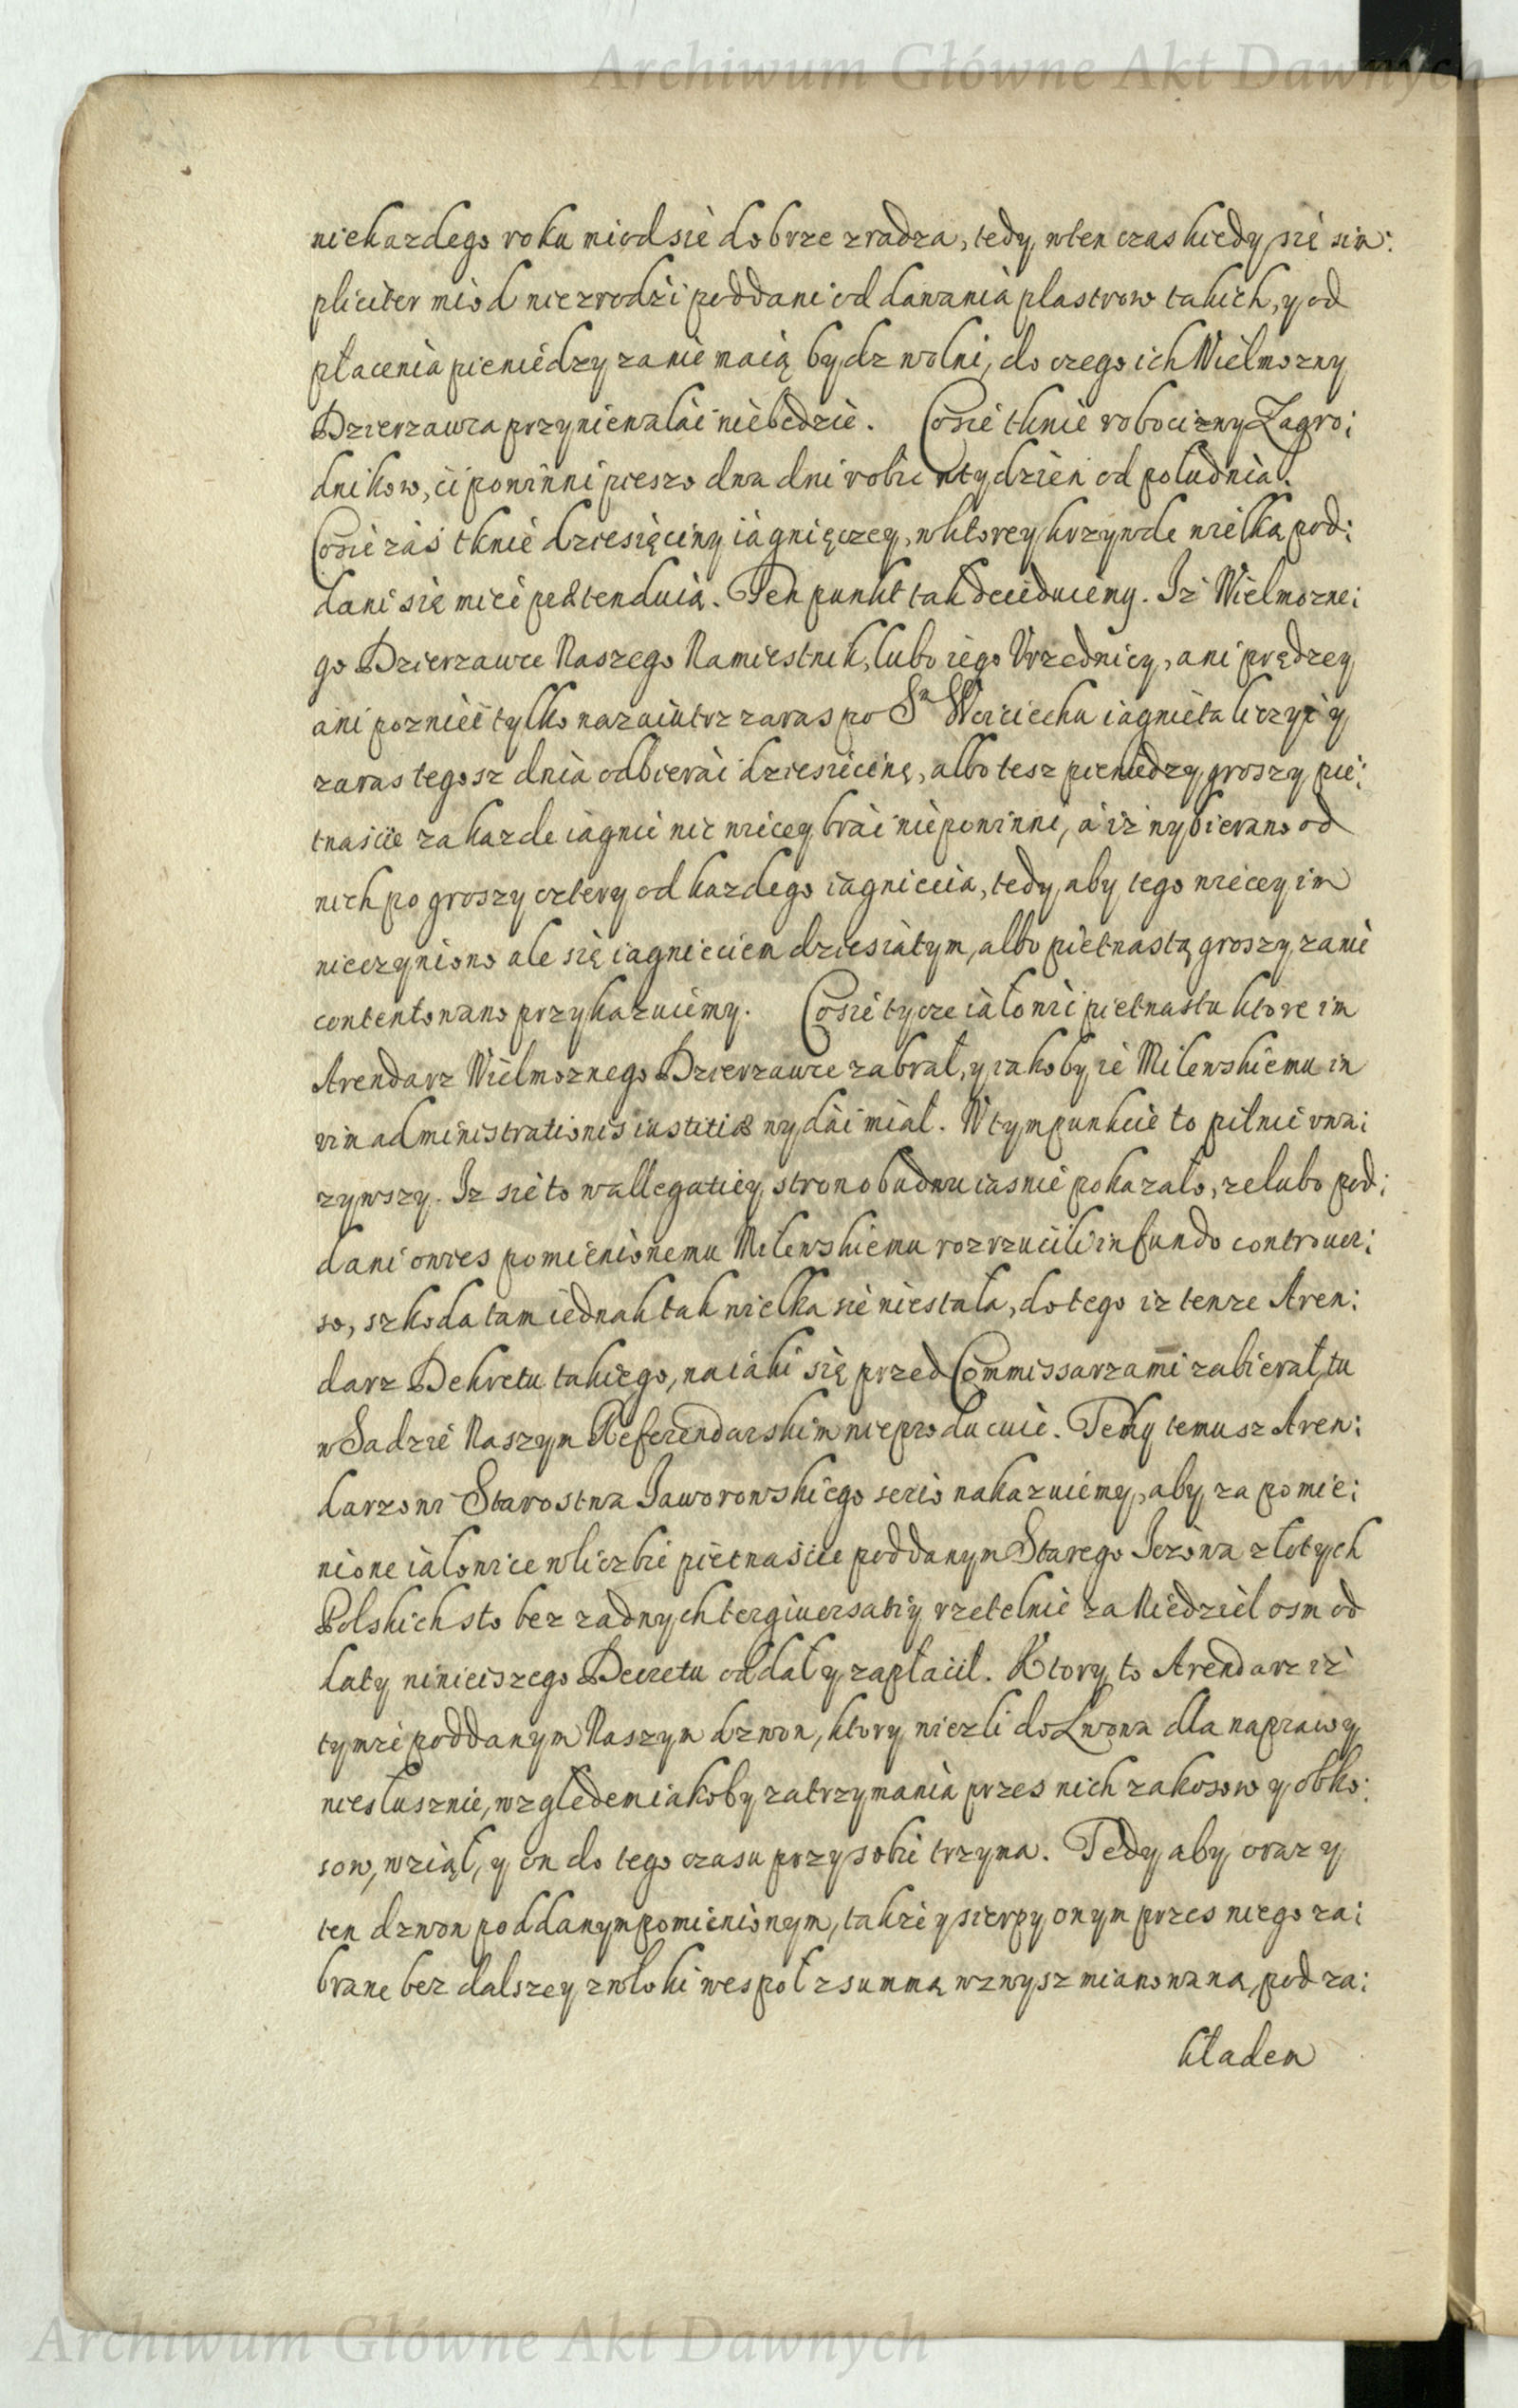 Archiwum Główne Akt Dawnych
niekazdego roku miod sie dobrze zradza, tedy wten czas kiedy się sim:
pliciter miod niezrodzi poddani od dawania plastrow takich, y od
płacenia pieniędzy zanie maią bydz wolni, do czego ich Wielmozny
Dzierzawca przyniewalać niebędzie. Cosie tknie robocizny Zagro:
dnikow, ci powinni pieszo dwa dni robic wtydzien od południa.
Cosie zaś tknie dziesięciny iagnięczey, wktorey krzywde wielką pod:
dani się mieć prætenduią. Ten punkt tak deciduiemy. Iz Wielmozne:
go Dzierzawce Naszego Namiestnik, lubo iego Vrzednicy, ani prędzey
ani poznieć tylko nazaiutrz zaras po Sm Woyciechu iagnięta liczyć y
zaras tegosz dnia odbierać dziesiecinę, albo tesz pieniedzy groszy pię:
tnaście zakazde iagnie nic wiecey brać niepowinni, a iz wybierano od
nich po groszy cztery od kazdego iagniecia, tedy aby tego wiecey im
nieczyniono ale się iagnieciem dziesiątym, albo piętnastą groszy zanie
contentowano przykazuiemy. Cosie tycze iałowic pietnastu ktore im
Arendarz Wielmoznego Dzierzawce zabrał, y iakoby ie Milewskiemu in
vim administrationis iustitiæ wydać miał. W tym punkcie to pilnie vwa:
zywszy. Iz sie to wallegatiey stron obudwu iasnie pokazało, ze lubo pod:
dani owies pomienionemu Milewskiemu rozrzucili in fundo controuer:
so, szkoda tam iednak tak wielka sie niestała, do tego iz tenze Aren:
darz Dekretu takiego, na iaki się przed Commissarzami zabierał, tu
w Sadzie Naszym Referendarskim nieproducuie. Tedy temusz Aren:
darzowi Starostwa Jaworowskiego serio nakazuiemy, aby za pomie:
nione iałowice wliczbie piętnaście poddanym Starego Jazowa złotych
Polskich sto bez zadnych tergiuersatiy rzetelnie za Niedziel osm od
daty ninieiszego Decretu oddał y zapłacił. Ktory to Arendarz iz
tymze poddanym Naszym dzwon, ktory niezli do Lwowa dla naprawy
niesłusznie, względem iakoby zatrzymania przes nich zakosow y obko:
sow, wziął, y on do tego czasu przy sobie trzyma. Tedy aby oraz y
ten dzwon poddanym pomienionym, takze y sierpy onym przes niego za:
brane bez dalszey zwłoki wespoł z summą wzwysz mianowaną, pod za:
kładem
Archiwum Główne Akt Dawnych